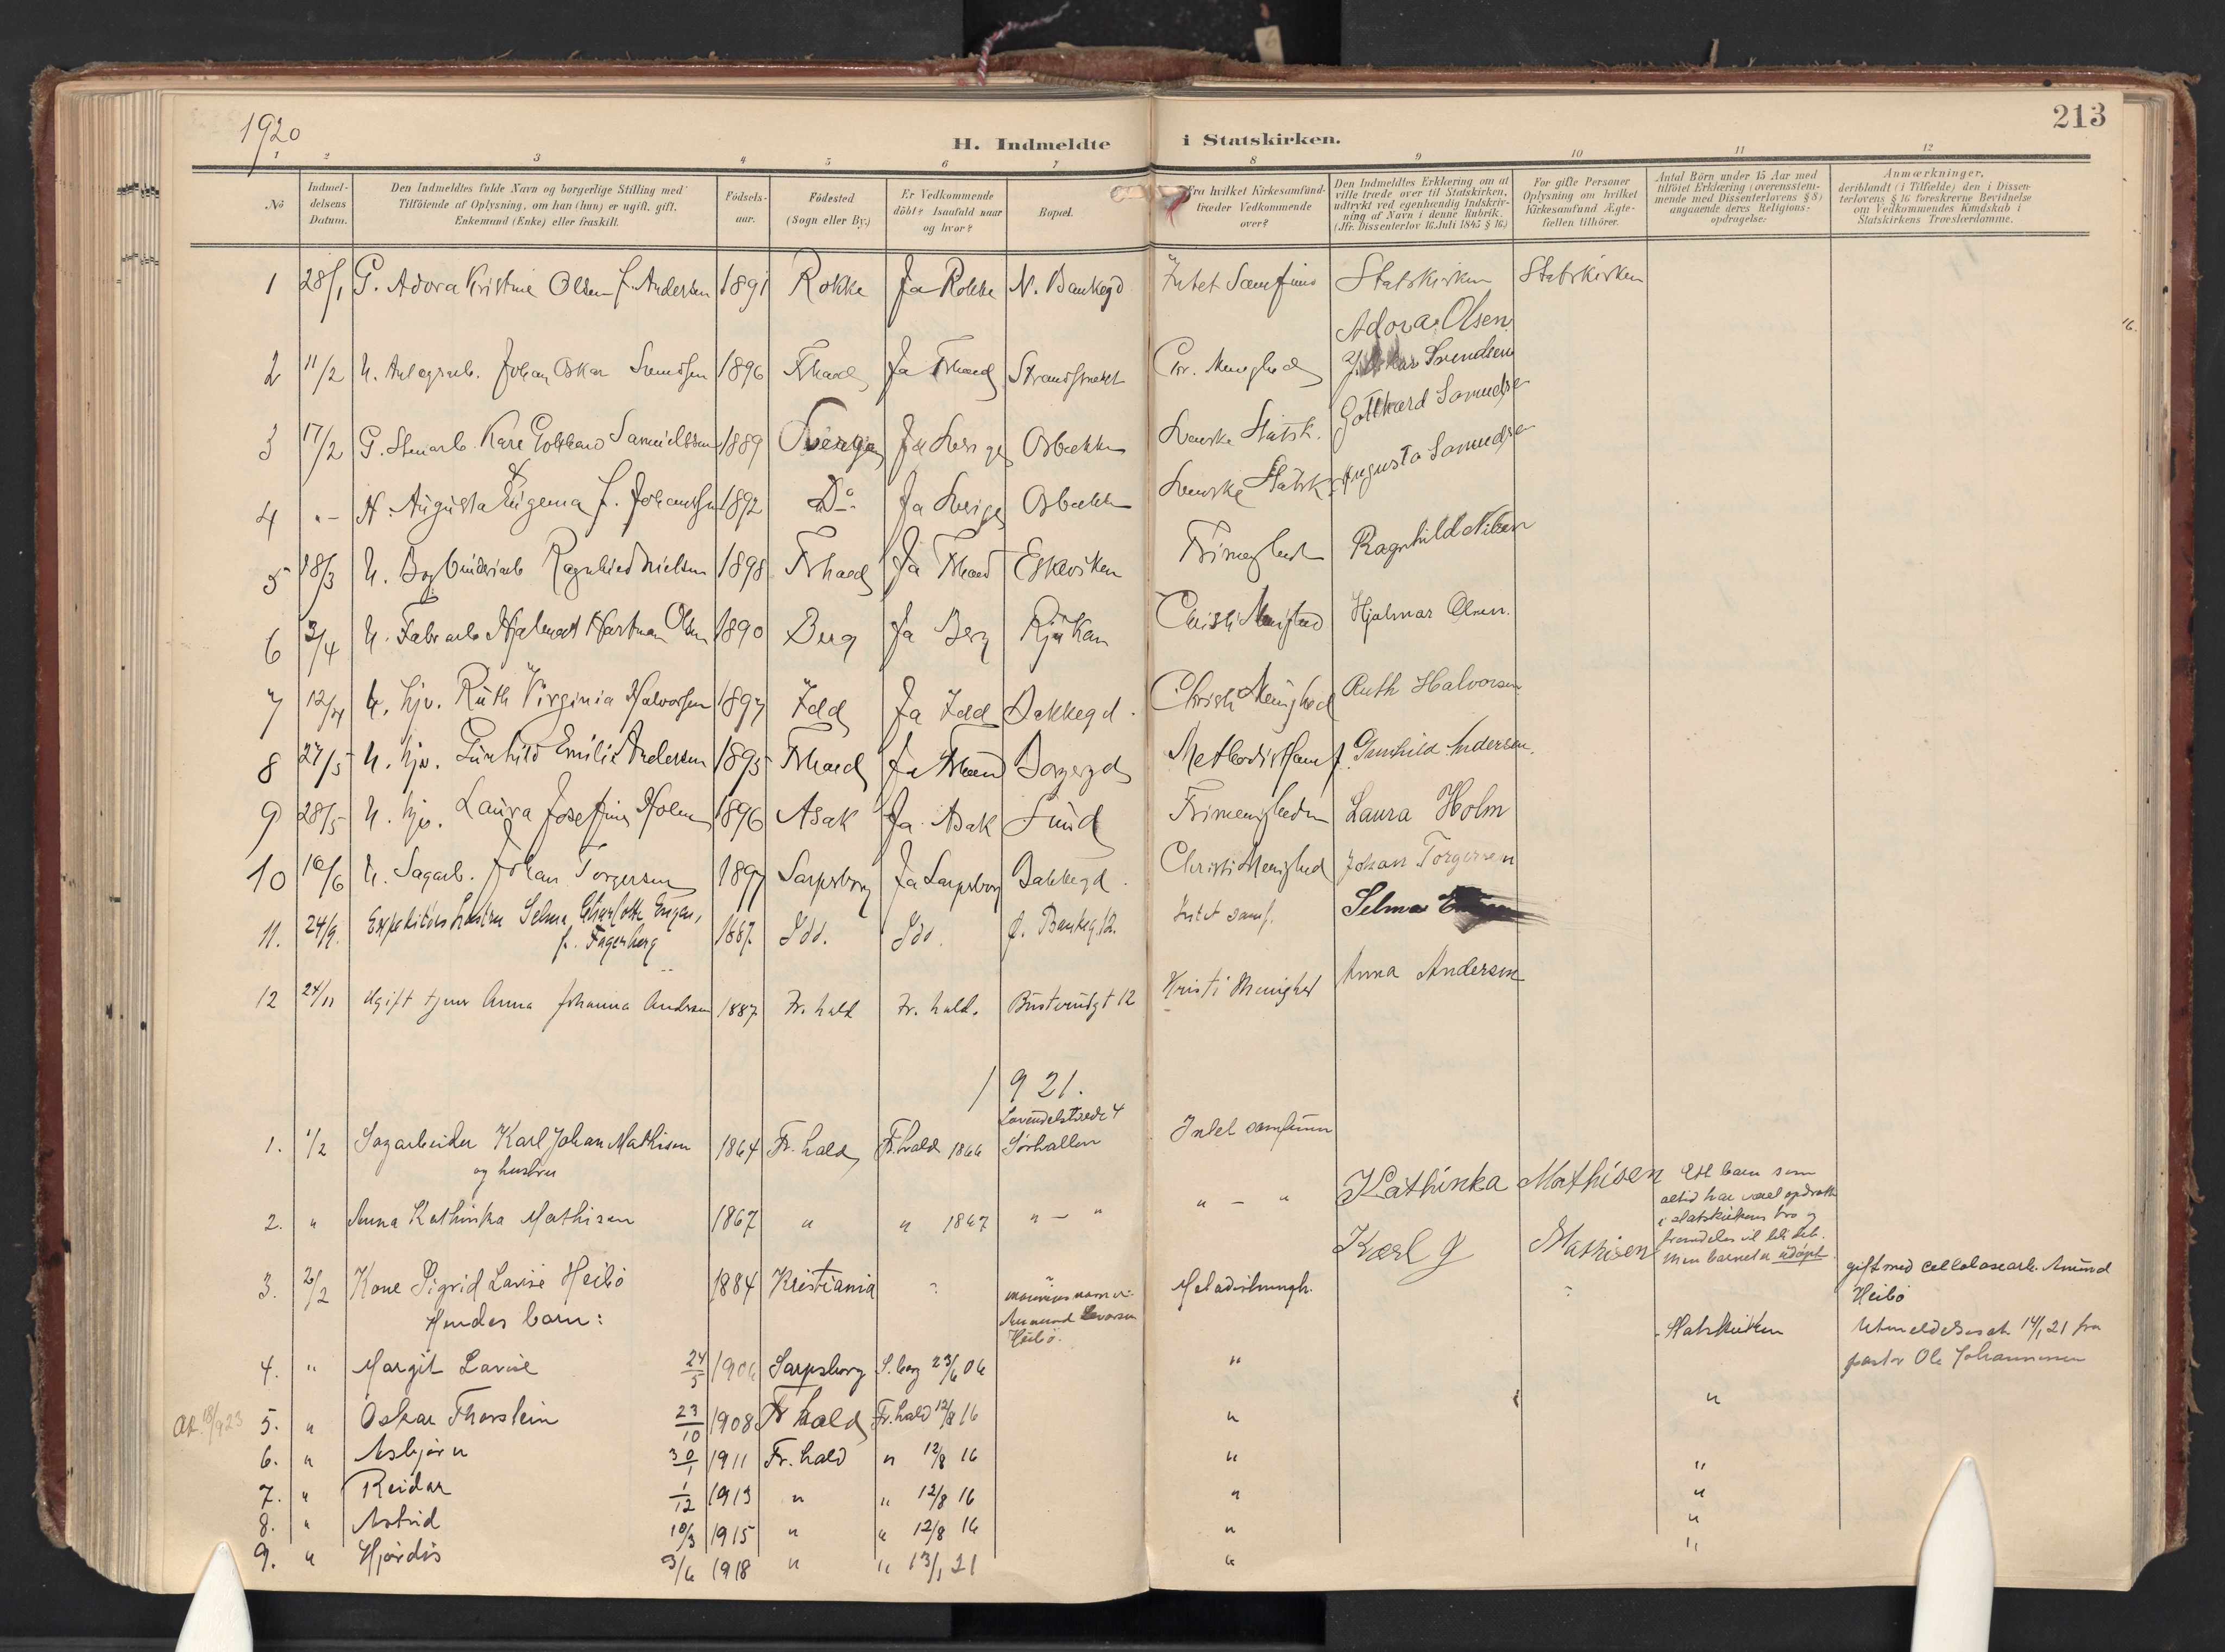 213
1920
H. Indmeldte i Statskirken.
1 2 3 4 5 6 7 8 9 10 11 12
No
Indmeldelsens Datum.
Den Indmeldtes fulde Navn og borgerlige Stilling med Tilföiende af Oplysning, om han (hun) er ugift, gift, Enkemand (Enke) eller fraskilt.
Födselsaar.
Födested (Sogn eller By.)
Er Vedkommende döbt? Isaafald naar og hvor?
Bopæl.
Fra hvilket Kirkesamfund træder Vedkommende over?
Den Indmeldtes Erklæring om at ville træde over til Statskirken, udtrykt ved egenhændig Indskrivning af Navn i denne Rubrik. (Jfr. Dissenterlov 16 Juli 1845 § 16.)
For gifte Personer Oplysning om hvilket Kirkesamfund Ægtefællen tilhörer.
Antal Börn under 15 Aar med tilföiet Erklæring (overensstemmende med Dissenterlovens § 8) angaaende deres Religionsopdragelse:
Anmærkninger, deriblandt (i Tilfælde) den i Dissenterlovens § 16 foreskrevne Bevidnelse om Vedkommendes Kundskab i Statskirkens Troeslærdomme.
1 28/1 G. Adora Kristine Olsen f. Andersen 1891 Rokke Ja Rokke N. Bankegd Intet Samfund Statskirken Statskirken
Adora Olsen
2 11/2 U. Johan Oskar Svendsen 1896 Frhald Ja Frhald Strandstrædet Chr. Menighed Svendsen
3 17/2 G. Stenarb. Karl Gotthard Samuelsson 1889 Sverige Ja Sverige Osbækken Svenske Statsk. Gotthard Samuelsson
4 " – H. Augusta Eugenia f. Johansson 1892 Do Ja Sverige Osbækken Svenske Statsk. Augusta Samuelsson
5 18/3 U. Bogbinderiarb Ragnhild Nielsen 1898 Frhald Ja Frhald Eskeviken Frimenighed Ragnhild Nilsen
6 3/4 U. Fabrarb Hjalmar Hartman Olsen 1890 Berg Ja Berg Rjukan Christi Menighed Hjalmar Olsen.
7 12/4 U. hjv. Ruth Virginia Halvorsen 1897 Idd Ja Idd Bakkegd. Christi Menighed Ruth Halvorsen
8 27/5 U. hjv. Gunhild Emilie Andersen 1895 Frhald Ja Frhald Borgergd Methodistsamf. Gunhild Andersen.
9 28/5 U. hjv. Laura Josefine Holm 1896 Asak Ja Asak Sund Frimenigheden Laura Holm
10 10/6 U. Sagarb. Johan Torgersen 1897 Sarpsborg Ja Sarpsborg Bakkegd. Christi Menighed Johan Torgersen
11. 24/9. Expeditörs hustru Selma Charlotte Engen,
f. Fagerberg 1887. Idd. Idd. Ø. Bankeg. 12. Intet samf. Selma
12 24/11 Ugift tjener Anna Johanna Andersen 1887 Fr.hald Fr.hald. 12 Kristi Menighet Anna Andersen
1921.
1. 1/2 Sagarbeider Karl Johan Mathisen 1864 Fr.hald Fr.hald 1864 Lavendelstrede 4 Sörhallen Intet samfunn
og hustru
2. " Anna Kathinka Mathisen 1867 " " 1867 " – " " – " Kathinka Mathisen
Karl J Mathisen
Ett barn som altid har været opdratt i statskirkens tro og fremdeles vil bli det. men barnet er udöpt.
3. 2/2 Kone Sigrid Lovise Heibö 1884 Kristiania mannens navn er: Heibö. Metodistmengh. gift med cellulosearb. Amund Heibö
Hendes barn: Statskirken Utmeldelsesat. 14/1 21 fra pastor Ole Johannesen
4. " Margit Lovise 24/5 1906 Sarpsborg S.borg 23/6 06 "
5. " Oskar Thorstein 23/10 1908 Fr hald Fr.hald 12/8 16 " "
6. " Asbjörn 30/1 1911 Fr. hald " 12/8 16 " "
7. " Reidar 1/12 1913 " " 12/8 16 " "
8. " Astrid 10/3 1915 " " 12/8 16 " "
9. " Hjördis 3/6 1918 " " 13/1 21 " "